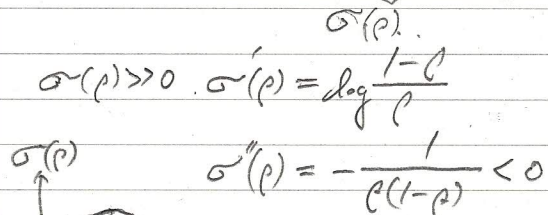 σ(ρ).
σ(ρ)>>0 . σ'(ρ) = log (1-ρ)/ρ
σ(ρ) σ''(ρ) = - 1/(ρ(1-ρ)) < 0